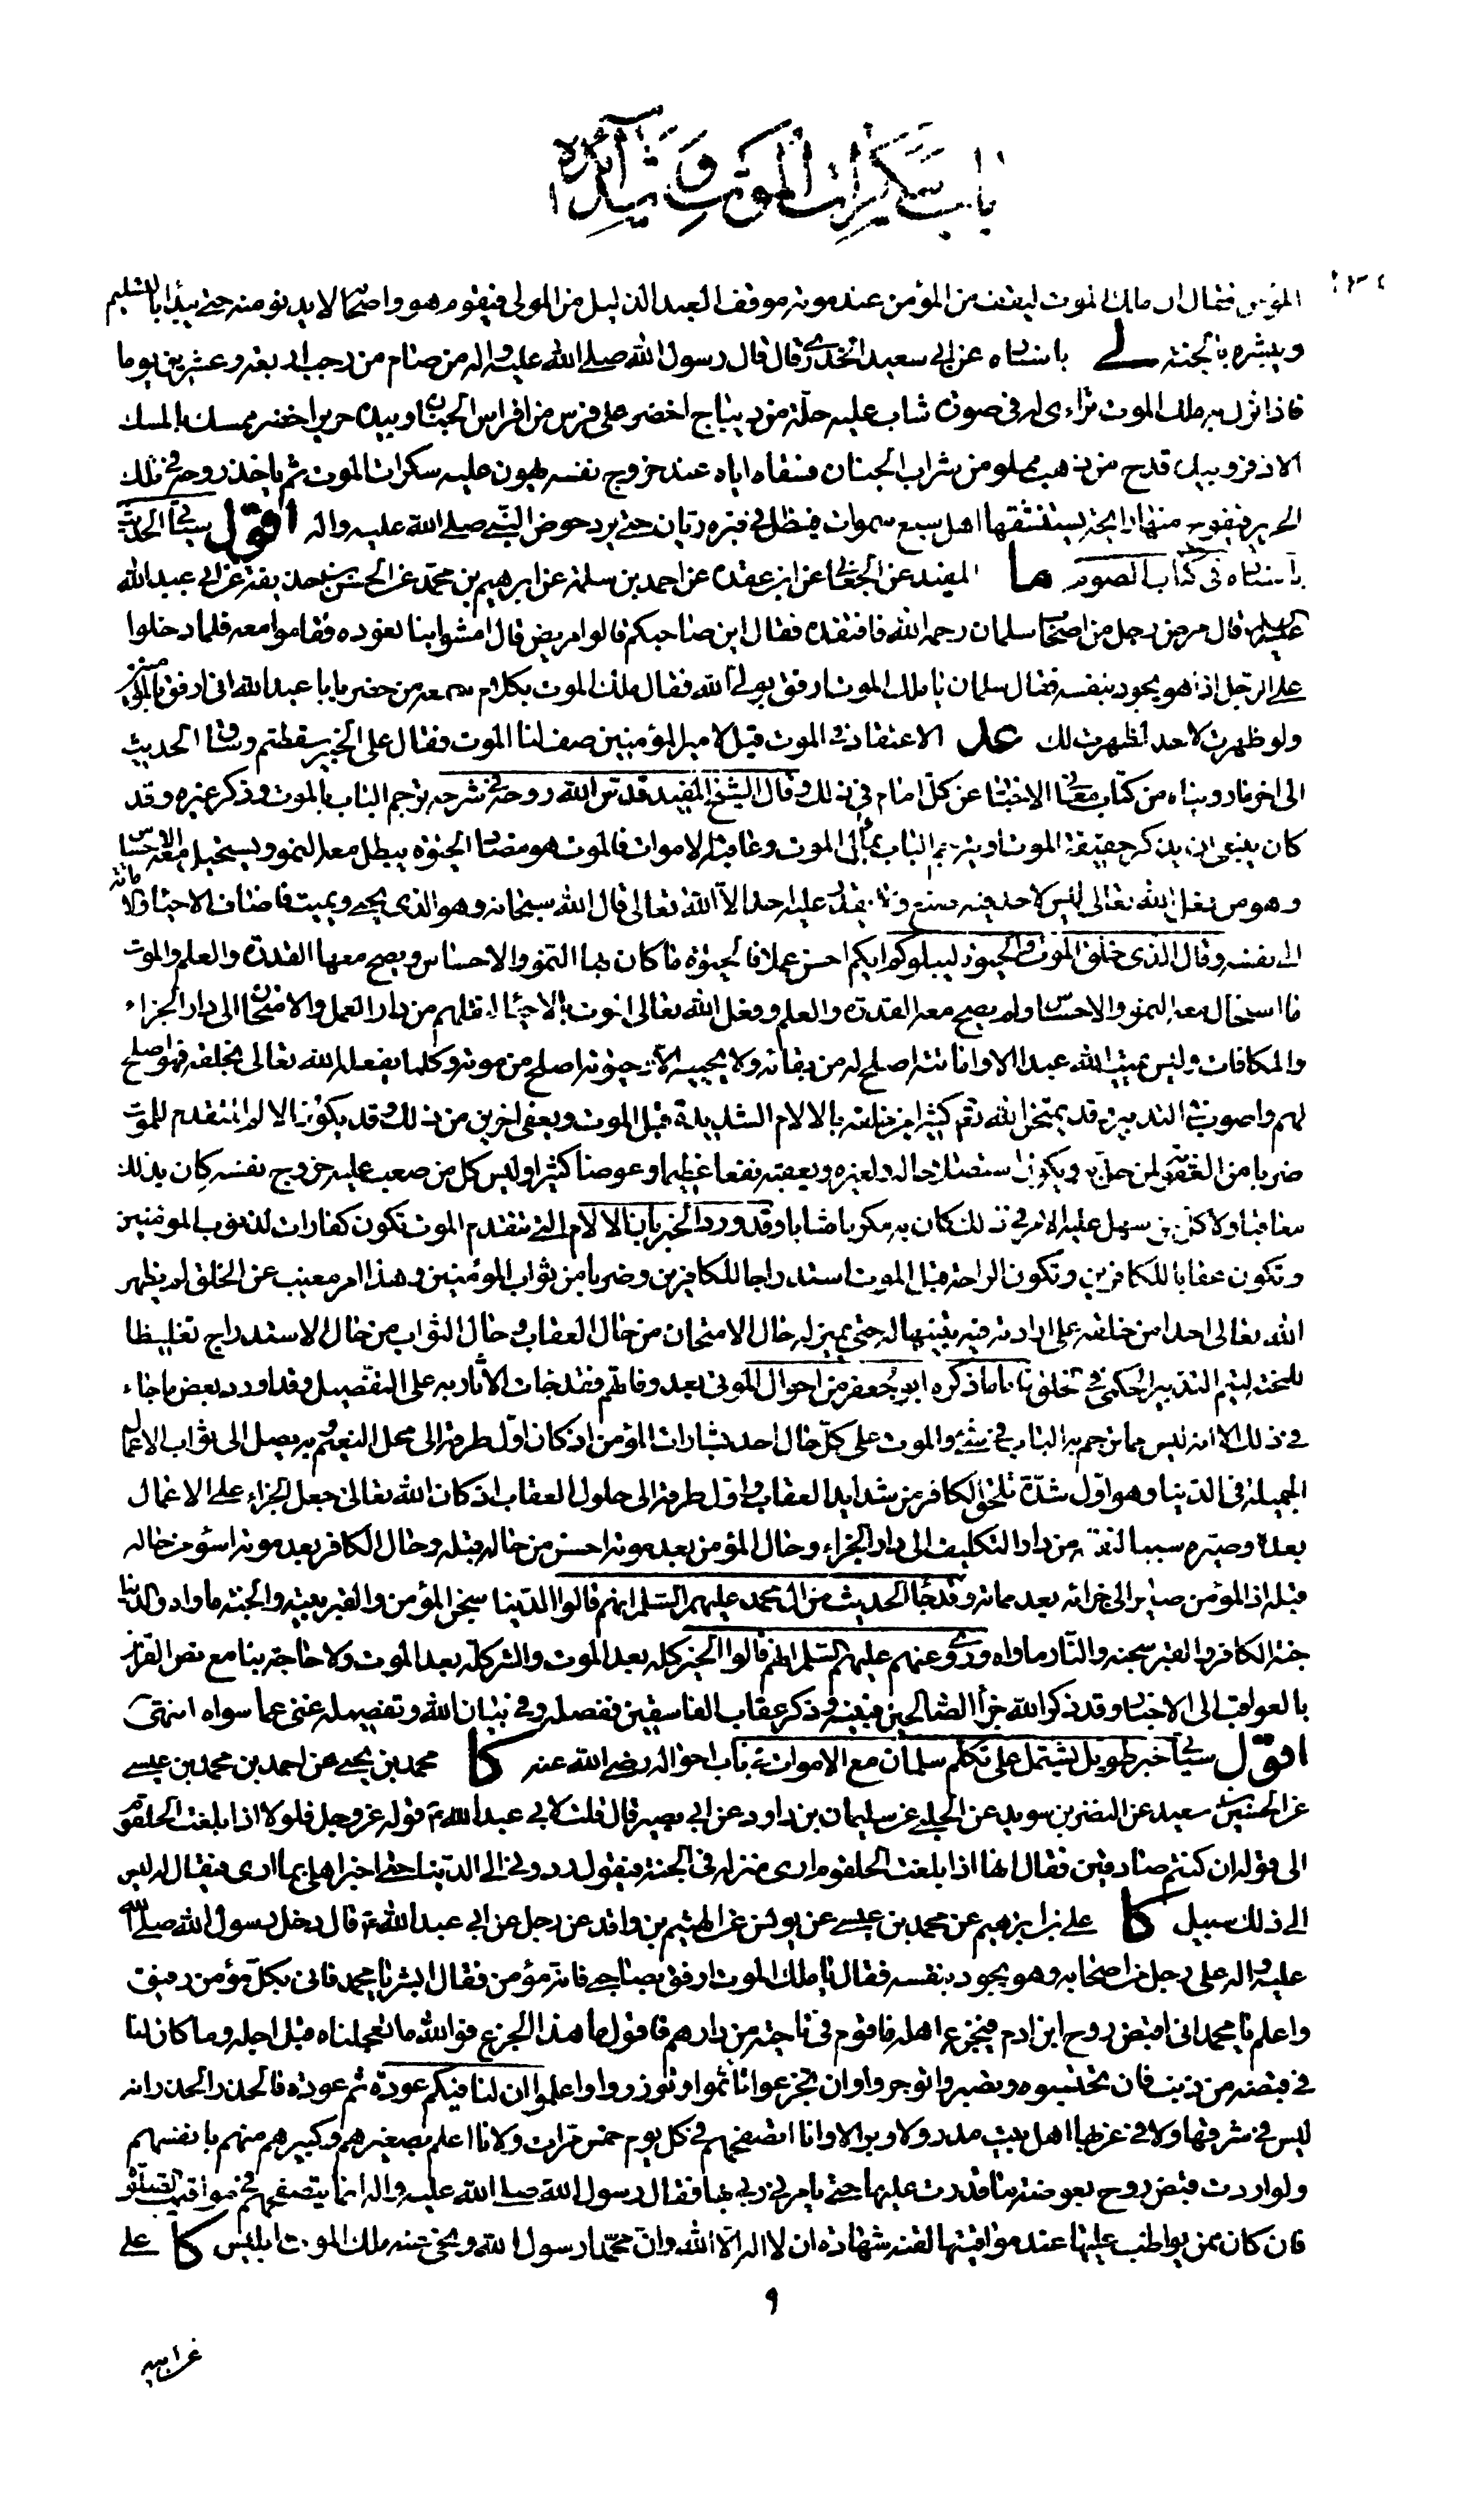 باب سكرات الموت وشدائده
المؤمن فقال ان ملك الموت ليقف من المؤمن عند موته موقف العبد الذليل من المولى فيقوم هو واصحابه لا يدنو منه حتى يبدأ بالتسليم
ويبشره بالجنة لى باسناده عن ابي سعيد الخدري قال قال رسول الله صلى الله عليه واله من صام من رجب اربعة وعشرين يوما
فاذا نزل به ملك الموت تراءى له في صورة شاب عليه حلة من ديباج اخضر على فرس من افراس الجنان وبيده حرير اخضر ممسك بالمسك
الاذفر وبيده قدح من ذهب مملو من شراب الجنان فسقاه اياه عند خروج نفسه يهون عليه سكرات الموت ثم ياخذ روحه في تلك
الحرير فيفوح منها رائحة يستنشقها اهل سبع سموات فيظل في قبره ريان حتى يرد حوض النبي صلى الله عليه واله اقول سيأتي الحديث
باسناده في كتاب الصوم ما المفيد عن الجعابي عن ابن عقدة عن احمد بن سلمة عن ابرهيم بن محمد عن الحسن بن حذيفة عن ابي عبد الله
عليه السلم قال مرض رجل من اصحاب سلمان رحمه الله فافتقده فقال اين صاحبكم قالوا مريض قال امشوا بنا نعوده فقاموا معه فلما دخلوا
على الرجل اذا هو يجود بنفسه فقال سلمان يا ملك الموت ارفق بولي الله فقال ملك الموت بكلام سمعه من حضر يا ابا عبد الله اني ارفق بالمؤمنين
ولو ظهرت لاحد لظهرت لك عد الاعتقاد في الموت قيل لامير المؤمنين صف لنا الموت فقال على الخبير سقطتم وساق الحديث
الى اخر ما رويناه من كتاب معاني الاخبار عن كل امام في ذلك وقال الشيخ المفيد قدس الله روحه في شرحه ترجم الباب بالموت وذكر غيره وقد
كان ينبغي ان يذكر حقيقة الموت او يترجم الباب بمآل الموت وعاقبة الاموات فالموت هو مضاد الحيوة يبطل معه النمو ويستحيل معه الاحساس
وهو من فعل الله تعالى ليس لاحد فيه صنع ولا يقدر عليه احد الا الله تعالى قال الله سبحانه وهو الذي يحيى ويميت فاضاف الاحياء والاماتة
الى نفسه وقال الذي خلق الموت والحيوة ليبلوكم ايكم احسن عملا فالحيوة ما كان بها النمو والاحساس ويصح معها القدرة والعلم والموت
ما استحال معه النمو والاحساس ولم يصح معه القدرة والعلم وفعل الله تعالى الموت بالاحياء لنقلهم من دار العمل والامتحان الى دار الجزاء
والمكافات وليس يميت الله عبدا الا واماتته اصلح له من بقائه ولا يحييه الا وحيوته اصلح من موته وكلما يفعله الله تعالى بخلقه فهو اصلح
لهم واصوب في التدبير وقد يمتحن الله تعم كثيرا من خلقه بالالام الشديدة قبل الموت ويعفي اخرين من ذلك وقد يكون الالم المتقدم للموت
ضربا من العقوبة لمن حل به ويكون استصلاحا له ولغيره ويعقبه نفعا عظيما وعوضا كثيرا وليس كل من صعب عليه خروج نفسه كان بذلك
معاقبا ولا كل من سهل عليه الامر في ذلك كان به مكرما مثابا وقد ورد الخبر بان الالام التي تتقدم الموت تكون كفارات لذنوب المؤمنين
وتكون عقابا للكافرين وتكون الراحة قبل الموت استدراجا للكافرين وضربا من ثواب المؤمنين وهذا امر مغيب عن الخلق لم يظهر
الله تعالى احدا من خلقه على ارادته فيه تنبيها له حتى يميز له حال الامتحان من حال العقاب وحال الثواب من حال الاستدراج تغليظا
للمحنة ليتم التدبير الحكمي في الخلق فاما ما ذكره ابو جعفر من احوال الموتى بعد وفاتهم فقد جاءت الاثار به على التفصيل وقد اورد بعض ما جاء
في ذلك الا انه ليس مما ترجم به الباب في شئ والموت على كل حال احد بشارات المؤمن اذ كان اول طرقه الى محل النعيم وبه يصل الى ثواب الاعمال
الجميلة في الدنيا وهو اول شدة تلحق الكافر من شدايد العقاب واول طرقه الى حلول العقاب اذ كان الله تعالى جعل الجزاء على الاعمال
بعده وصيره سببا لنقله من دار التكليف الى دار الجزاء وحال المؤمن بعد موته احسن من حاله قبله وحال الكافر بعد موته اسوء من حاله
قبله اذ المؤمن صاير الى جزائه بعد مماته وقد جاء الحديث من ال محمد عليهم السلم انهم قالوا الدنيا سجن المؤمن والقبر بيته والجنة ماواه والدنيا
جنة الكافر والقبر سجنه والنار ماواه وروي عنهم عليهم السلم انهم قالوا الخير كله بعد الموت والشر كله بعد الموت ولا حاجة بنا مع نص القران
بالعواقب الى الاخبار وقد ذكر الله جزاء الصالحين فبينه وذكر عقاب الفاسقين ففصله وفي بيان الله وتفصيله غنى عما سواه انتهى
اقول سيأتي خبر طويل يشتمل على تكلم سلمان مع الاموات في باب احواله رضي الله عنه كا محمد بن يحيى عن احمد بن محمد بن عيسى
عن الحسين بن سعيد عن النضر بن سويد عن الحلبي عن سليمان بن داود عن ابي بصير قال قلت لابي عبد الله ع قوله عز وجل فلولا اذا بلغت الحلقوم
الى قوله ان كنتم صادقين فقال انها اذا بلغت الحلقوم ارى منزله في الجنة فيقول ردوني الى الدنيا حتى اخبر اهلي بما ارى فيقال له ليس
الى ذلك سبيل كا علي بن ابرهيم عن محمد بن عيسى عن يونس عن الهيثم بن واقد عن رجل عن ابي عبد الله ع قال دخل رسول الله صلى الله
عليه واله على رجل من اصحابه وهو يجود بنفسه فقال يا ملك الموت ارفق بصاحبي فانه مؤمن فقال ابشر يا محمد فاني بكل مؤمن رفيق
واعلم يا محمد اني اقبض روح ابن ادم فيجزع اهله فاقوم في ناحية من دارهم فاقول ما هذا الجزع فوالله ما تعجلناه قبل اجله وما كان لنا
في قبضه من ذنب فان تحتسبوه وتصبروا توجروا وان تجزعوا تاثموا وتوزروا واعلموا ان لنا فيكم عودة ثم عودة فالحذر الحذر انه
ليس في شرقها ولا في غربها اهل بيت مدر ولا وبر الا وانا اتصفحهم في كل يوم خمس مرات ولانا اعلم بصغيرهم وكبيرهم منهم بانفسهم
ولو اردت قبض روح بعوضة ما قدرت عليها حتى يامرني ربي بها فقال رسول الله صلى الله عليه واله انما يتصفحهم في مواقيت الصلوة
فان كان ممن يواظب عليها عند مواقيتها لقنه شهادة ان لا اله الا الله وان محمدا رسول الله ونحى عنه ملك الموت ابليس كا على
٩
عن ابيه